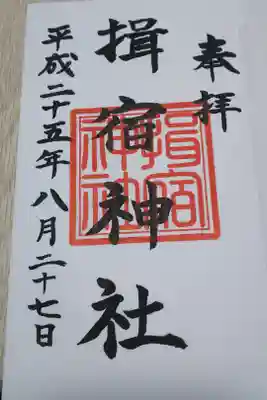 奉拝
揖宿神社
揖宿
神社
平成二十五年八月二十七日